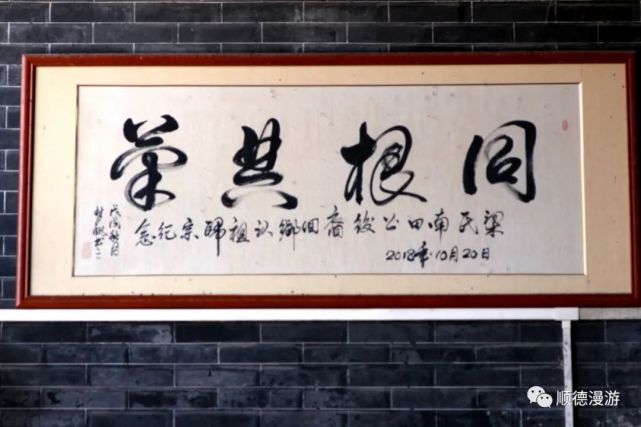 同根共荣
梁氏南田公後裔回鄉认祖歸宗纪念
2018年10月20日
戊戌秋月
顺德漫游